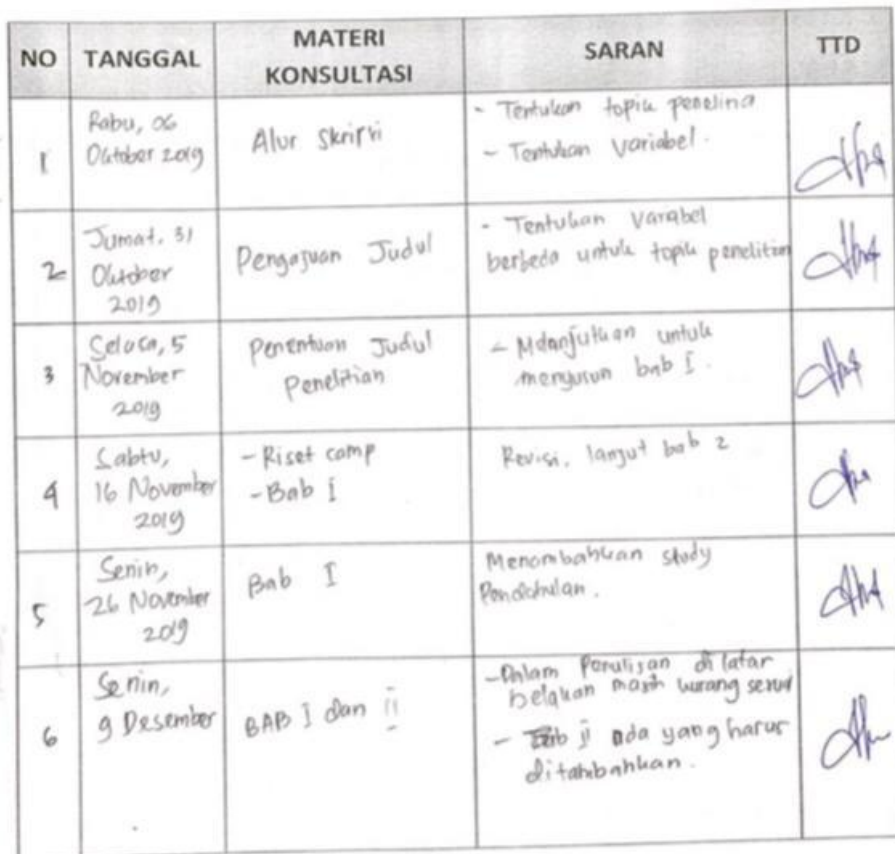 NO TANGGAL MATERI KONSULTASI SARAN TTD
1 Rabu, 06 Oktober 2019 Alur Skripsi - Tentukan topik penelina
- Tentukan Variabel.
2 Jumat, 31 Oktober 2019 Pengajuan Judul - Tentukan Varabel
berbeda untuk topik penelitian
3 Selasa, 5 November 2019 Penentuan Judul Penelitian - Melanjutkan untuk
menyusun bab I.
4 Sabtu, 16 November 2019 - Riset camp
- Bab I
Revisi, lanjut bab 2
5 Senin, 26 November 2019 Bab I Menambahkan study
Pendahulan.
6 Senin, 9 Desember BAB I dan ii - Dalam Penulisan di latar
belakan masih kurang
- Bab ii ada yang harus
ditambahkan.